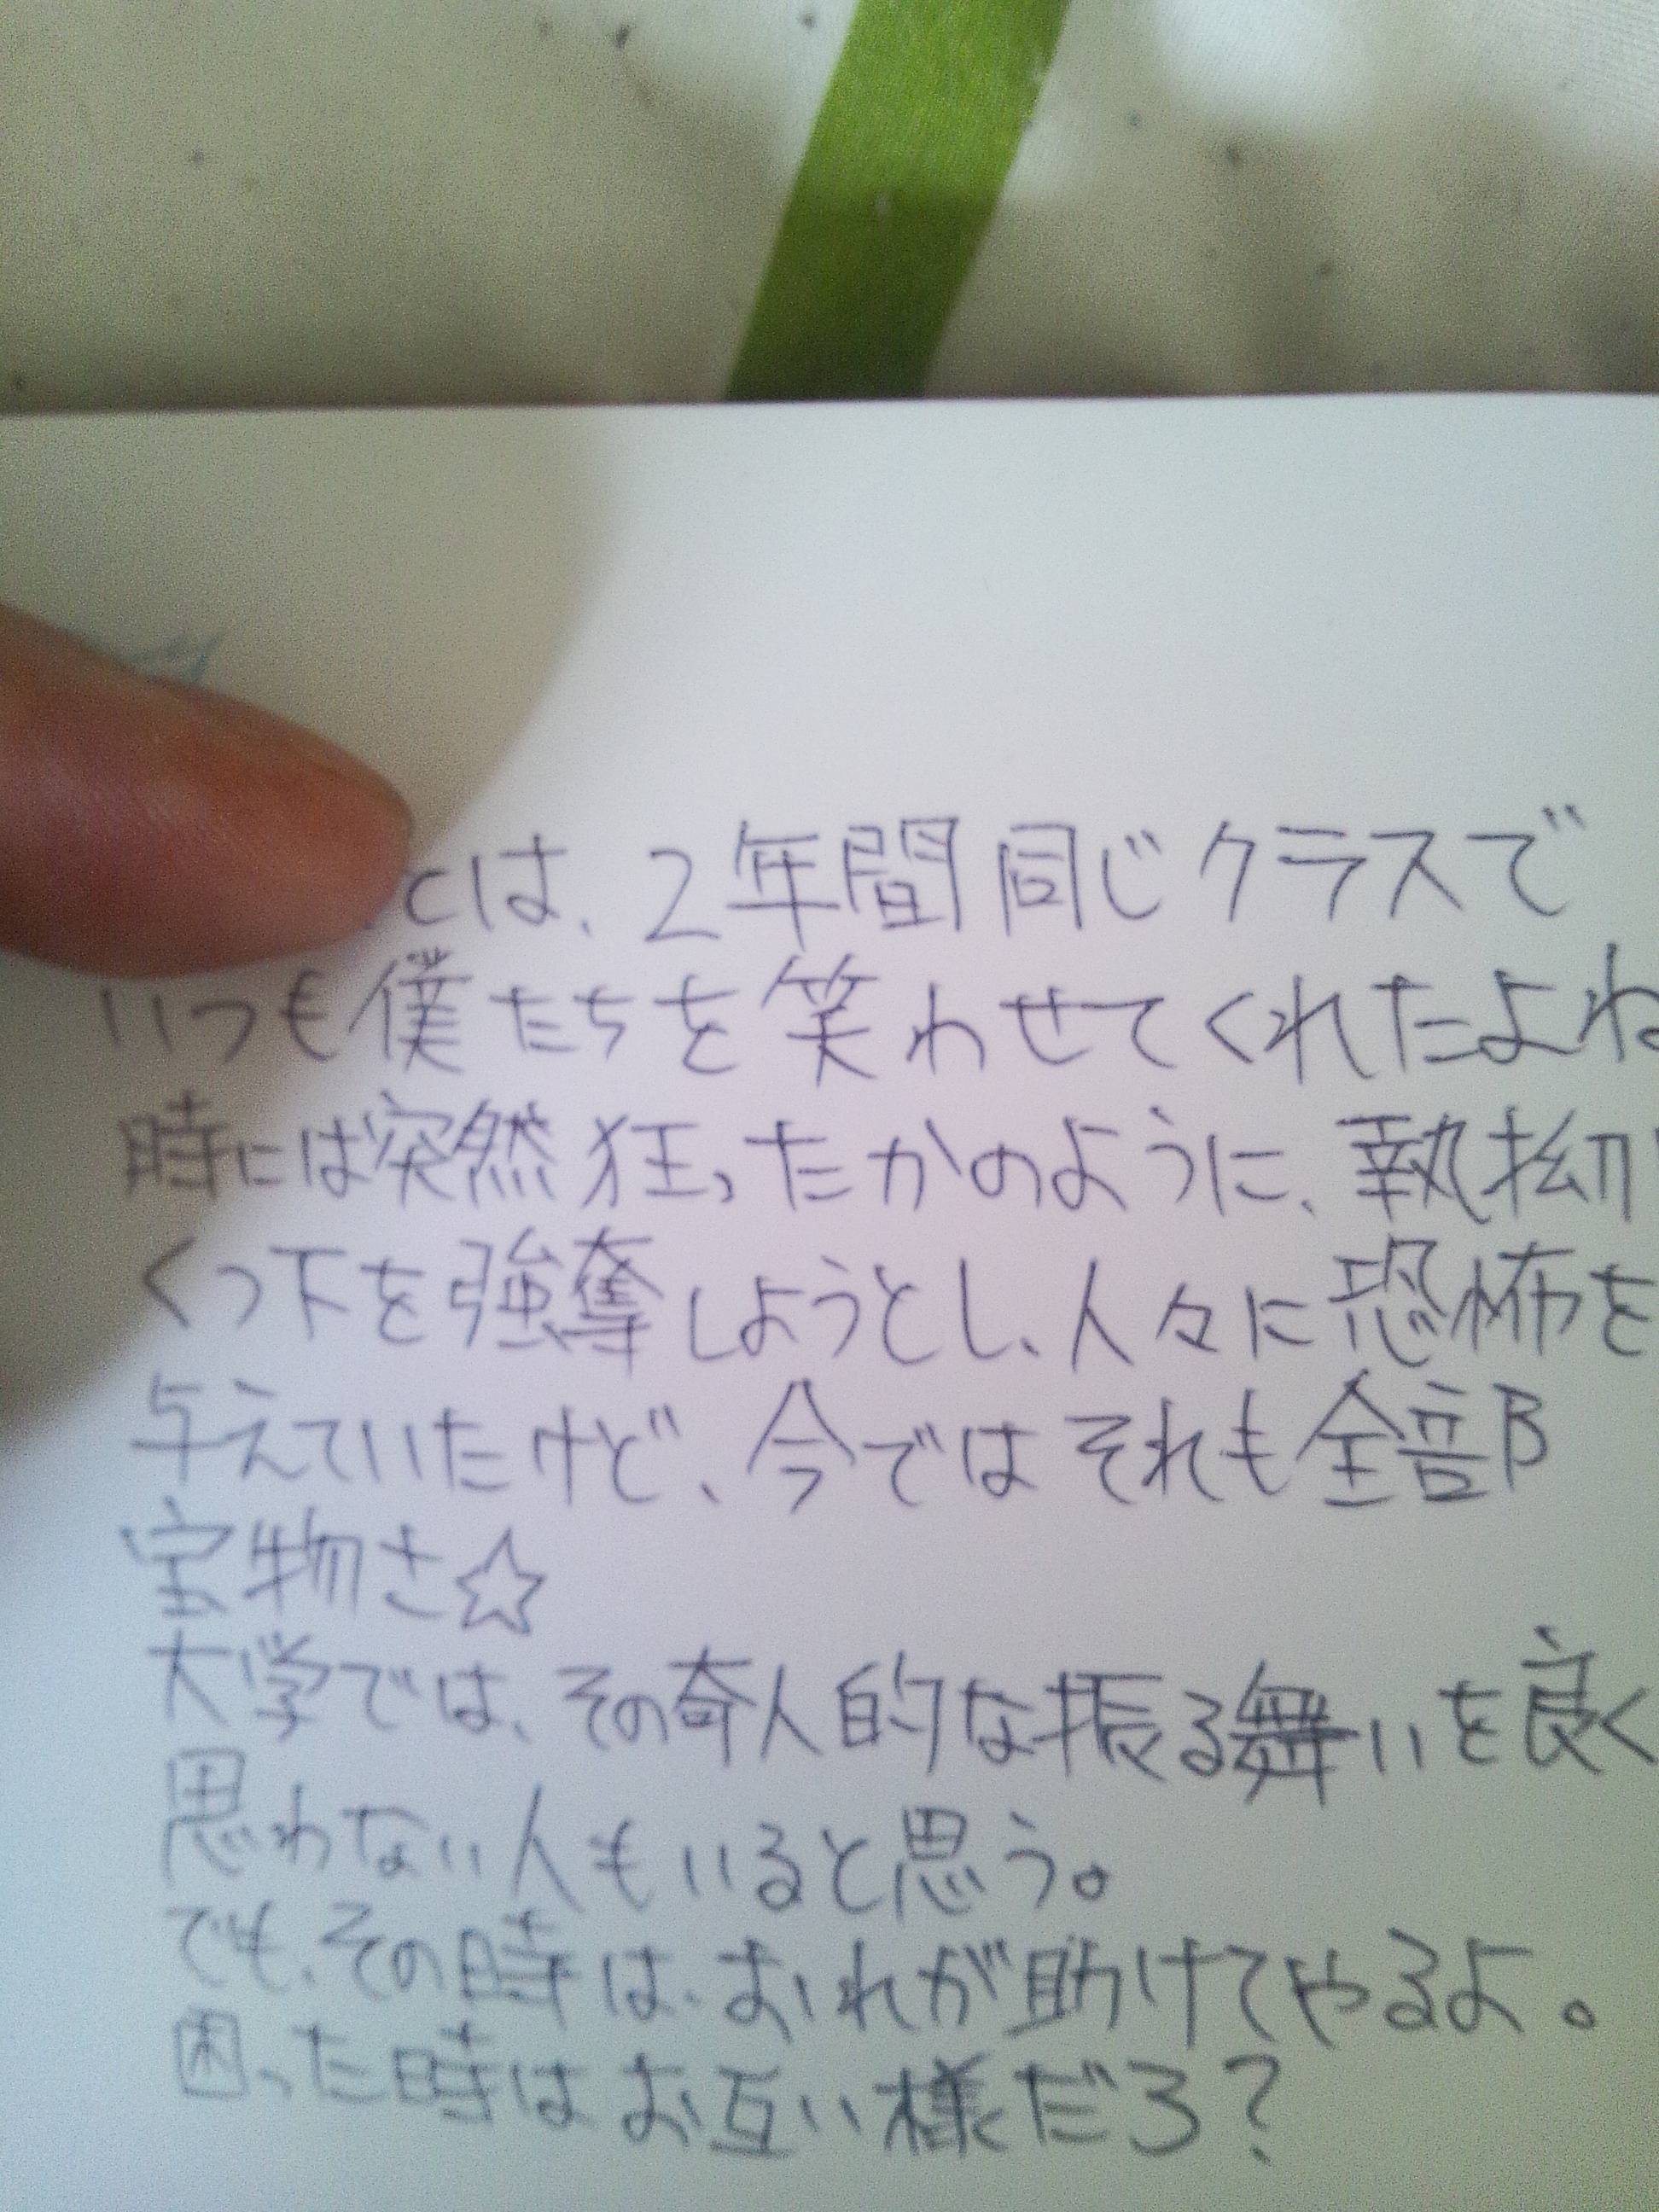 とは、2年間同じクラスで
いつも僕たちを笑わせてくれたよね
時には突然狂ったかのように、執拗に
くつ下を強奪しようとし、人々に恐怖を
与えていたけど、今ではそれも全部
宝物さ☆
大学では、その奇人的な振る舞いを良く
思わない人もいると思う。
でも、その時は、おれが助けてやるよ。
困った時はお互い様だろ?